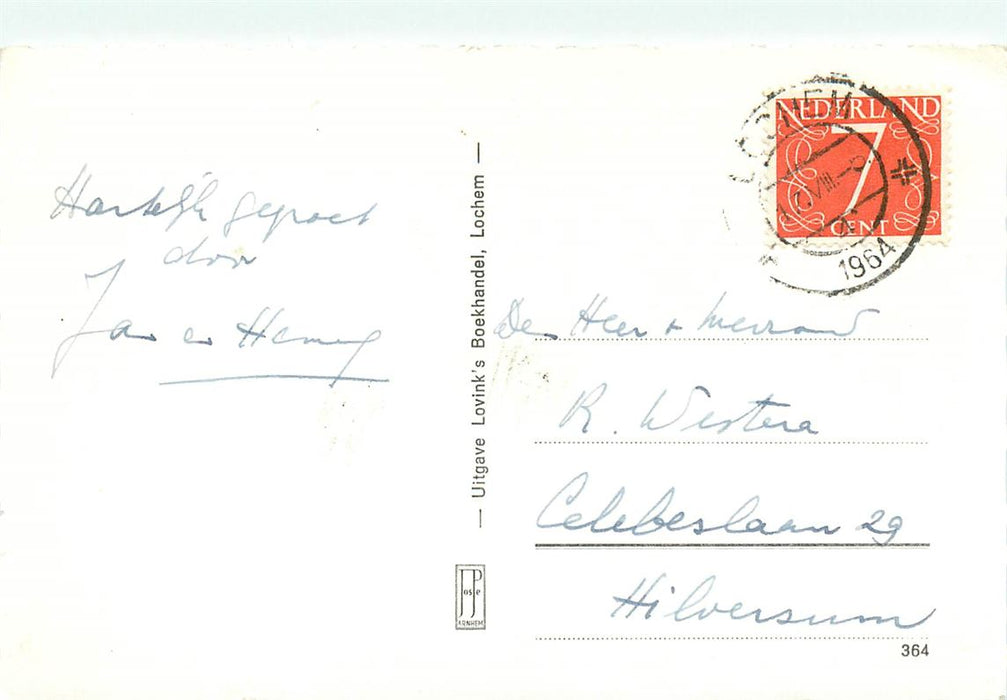 Hartelijk gegroet
door
Jan en Henny
— Uitgave Lovink's Boekhandel, Lochem —
JosPe
ARNHEM
NEDERLAND
7
CENT
LOCHEM
1964
De Heer + Mevrouw
R. Westera
Celebeslaan 29
Hilversum
364